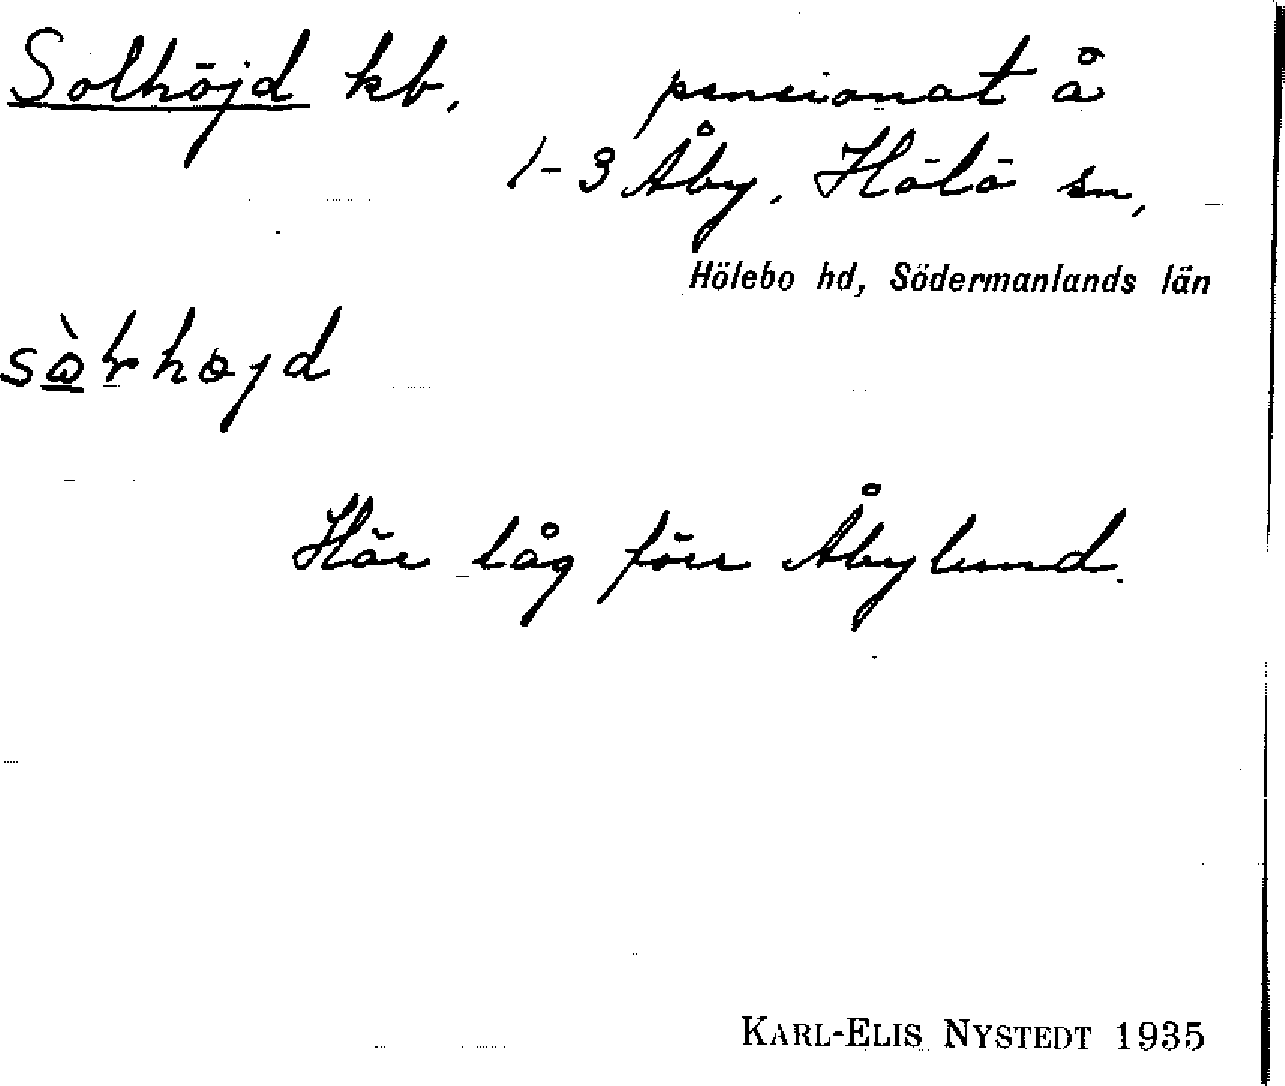 Solhöjd kb, pensionat å
1-3 Åby, Hölö sn,
Hölebo hd, Södermanlands län
Här låg förr Åbylund.
KARL-ELIS NYSTEDT 1935